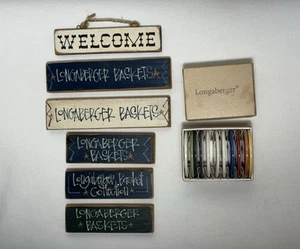 WELCOME
LONGABERGER BASKETS
LONGABERGER BASKETS
LONGABERGER
BASKETS
Longaberger Basket
Collection
LONGABERGER
BASKETS
Longaberger®